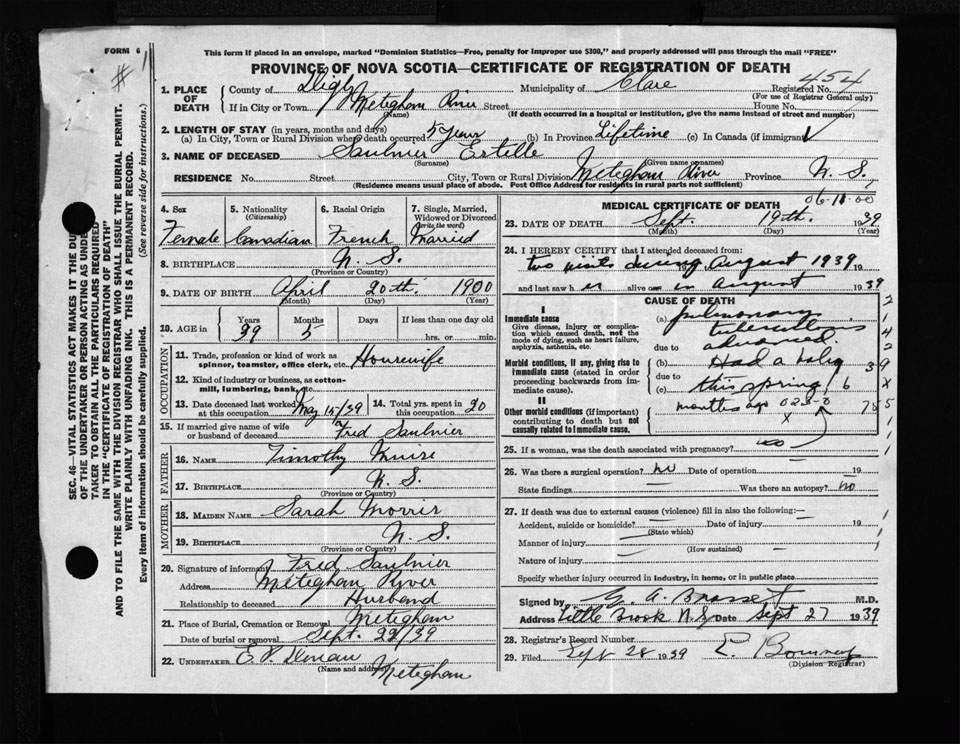 FORM 6
# 1
This form if placed in an envelope, marked "Dominion Statistics—Free, penalty for improper use $300," and properly addressed will pass through the mail "FREE"
PROVINCE OF NOVA SCOTIA—CERTIFICATE OF REGISTRATION OF DEATH
SEC. 46—VITAL STATISTICS ACT MAKES IT THE DUTY
OF THE UNDERTAKER OR PERSON ACTING AS UNDER-
TAKER TO OBTAIN ALL THE PARTICULARS REQUIRED
IN THE "CERTIFICATE OF REGISTRATION OF DEATH"
AND TO FILE THE SAME WITH THE DIVISION REGISTRAR WHO SHALL ISSUE THE BURIAL PERMIT.
WRITE PLAINLY WITH UNFADING INK. THIS IS A PERMANENT RECORD.
Every item of Information should be carefully supplied. (See reverse side for instructions.)
1. PLACE OF DEATH County of Digby Municipality of Clare Registered No. 454
(For use of Registrar General only)
If in City or Town Meteghan River Street House No.
(Name) (If death occurred in a hospital or institution, give the name instead of street and number)
2. LENGTH OF STAY (in years, months and days)
(a) In City, Town or Rural Division where death occurred 5 years (b) In Province Lifetime (c) In Canada (if immigrant)
3. NAME OF DECEASED Saulnier Estelle
(Surname) (Given name or names)
RESIDENCE No. Street City, Town or Rural Division Meteghan River Province N. S.
(Residence means usual place of abode. Post Office Address for residents in rural parts not sufficient)
4. Sex 5. Nationality (Citizenship) 6. Racial Origin 7. Single, Married, Widowed or Divorced (write the word)
Female Canadian French Married
8. BIRTHPLACE N. S.
(Province or Country)
9. DATE OF BIRTH April 20th. 1900
(Month) (Day) (Year)
10. AGE in Years Months Days If less than one day old
39 5 hrs. or min.
OCCUPATION
11. Trade, profession or kind of work as spinner, teamster, office clerk, etc. Housewife
12. Kind of industry or business, as cotton-mill, lumbering, bank, etc.
13. Date deceased last worked at this occupation May 15/39 14. Total yrs. spent in this occupation 20
15. If married give name of wife or husband of deceased Fred Saulnier
FATHER
16. NAME Timothy Muise
17. BIRTHPLACE N. S.
(Province or Country)
MOTHER
18. MAIDEN NAME Sarah Morris
19. BIRTHPLACE N. S.
(Province or Country)
20. Signature of informant Fred Saulnier
Address Meteghan River
Relationship to deceased Husband
21. Place of Burial, Cremation or Removal Meteghan
Date of burial or removal Sept. 22/39
22. UNDERTAKER
(Name and address) Meteghan
MEDICAL CERTIFICATE OF DEATH 06-11-00
23. DATE OF DEATH Sept. 19th. 39
(Month) (Day) (Year)
24. I HEREBY CERTIFY that I attended deceased from:
two visits during to August 1939 19
and last saw her alive on in August 1939
CAUSE OF DEATH
I
Immediate cause
Give disease, injury or complication which caused death, not the mode of dying, such as heart failure, asphyxia, asthenia, etc.
(a) pulmonary
tuberculous
due to advanced.
Morbid conditions, if any, giving rise to immediate cause (stated in order proceeding backwards from immediate cause).
(b) Had a baby
due to
(c) this spring 6
II
Other morbid conditions (if important) contributing to death but not causally related to immediate cause.
months ago 023-0
X
25. If a woman, was the death associated with pregnancy? no
26. Was there a surgical operation? no Date of operation 19
State findings Was there an autopsy? no
27. If death was due to external causes (violence) fill in also the following:—
Accident, suicide or homicide? Date of injury 19
(State which)
Manner of injury
(How sustained)
Nature of injury
Specify whether injury occurred in industry, in home, or in public place
Signed by M.D.
Address Little Brook N.S. Date Sept 27 1939
28. Registrar's Record Number
29. Filed Sept 28 1939
(Division Registrar)